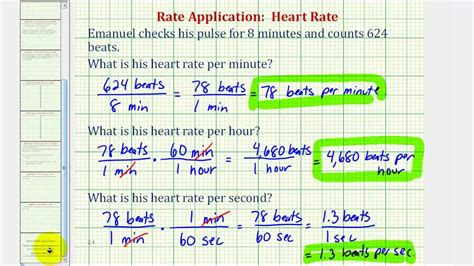 Rate Application: Heart Rate
Emanuel checks his pulse for 8 minutes and counts 624
beats.
What is his heart rate per minute?
624 beats / 8 min = 78 beats / 1 min = 78 beats per minute
What is his heart rate per hour?
78 beats / 1 min · 60 min / 1 hour = 4,680 beats / 1 hour = 4,680 beats per
hour
What is his heart rate per second?
78 beats / 1 min · 1 min / 60 sec = 78 beats / 60 sec = 1.3 beats / 1 sec
= 1.3 beats per sec.